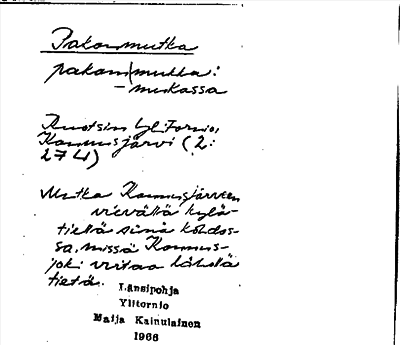 Pakanmutka
pakan|mutka:
- mukassa
Ruotsin Ylitornio,
Kannusjärvi (2:
274)
Mutka Kannusjärveen
vievällä kylä-
tiellä siinä kohdos-
sa, missä Kannus-
joki virtaa lähellä
tietä.
Länsipohja
Ylitornio
Maija Kainulainen
1966